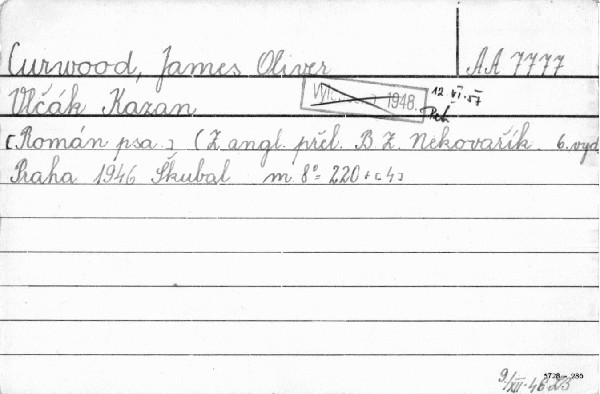 Curwood, James Oliver AA 7777
Vlčák Kazan 1948. 12 VI. 57
[Román psa.] (Z angl. přel. B. Z. Nekovařík. 6. vyd
Praha 1946 Škubal m. 8° 220 + [4]
5728 – 285
9/XII. 46